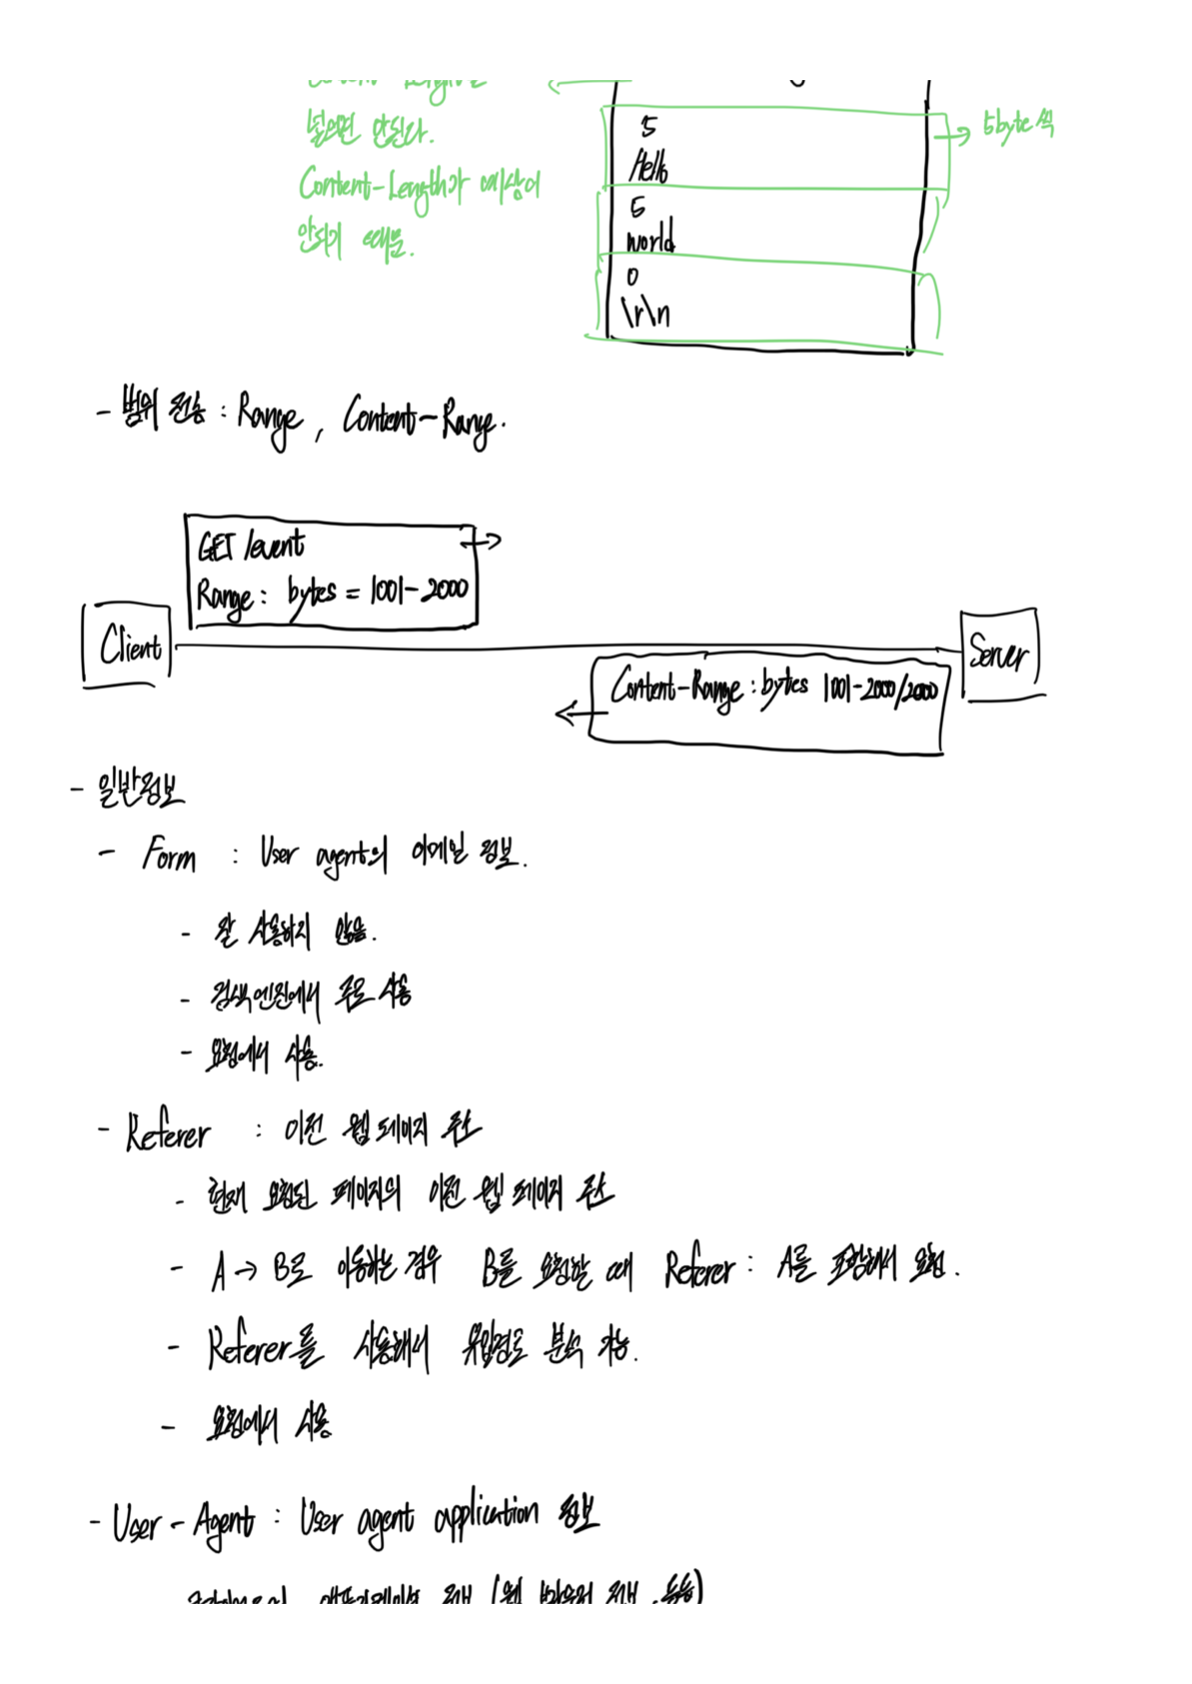 넣으면 안된다.
Content-Length가 예상이
안되기 때문.
5
Hello
5
world
0
\r\n
5byte씩
- 범위 전송 : Range, Content-Range.
GET /event
Range: bytes = 1001-2000
Client
Server
Content-Range: bytes 1001-2000/2000
- 일반정보
- Form : User agent의 이메일 정보.
- 잘 사용하지 않음.
- 검색엔진에서 주로 사용
- 요청에서 사용.
- Referer : 이전 웹 페이지 주소
- 현재 요청된 페이지의 이전 웹 페이지 주소
- A → B로 이동하는 경우 B를 요청할 때 Referer: A를 포함해서 요청.
- Referer를 사용해서 유입경로 분석 가능.
- 요청에서 사용
- User-Agent : User agent application 정보